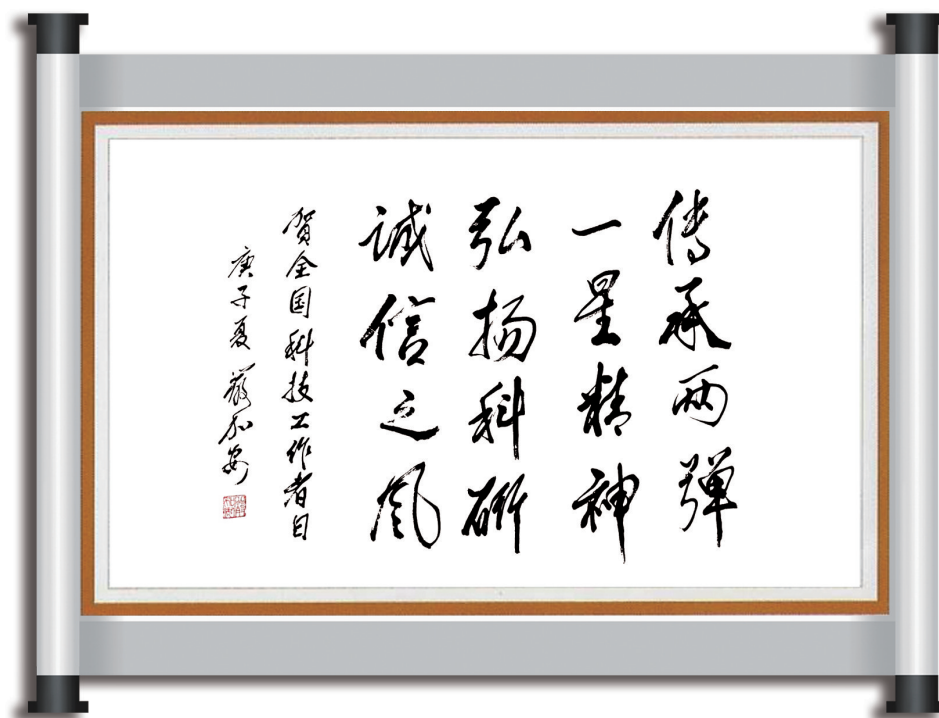 传承两弹
一星精神
弘扬科研
诚信之风
贺全国科技工作者日
庚子夏 严加安